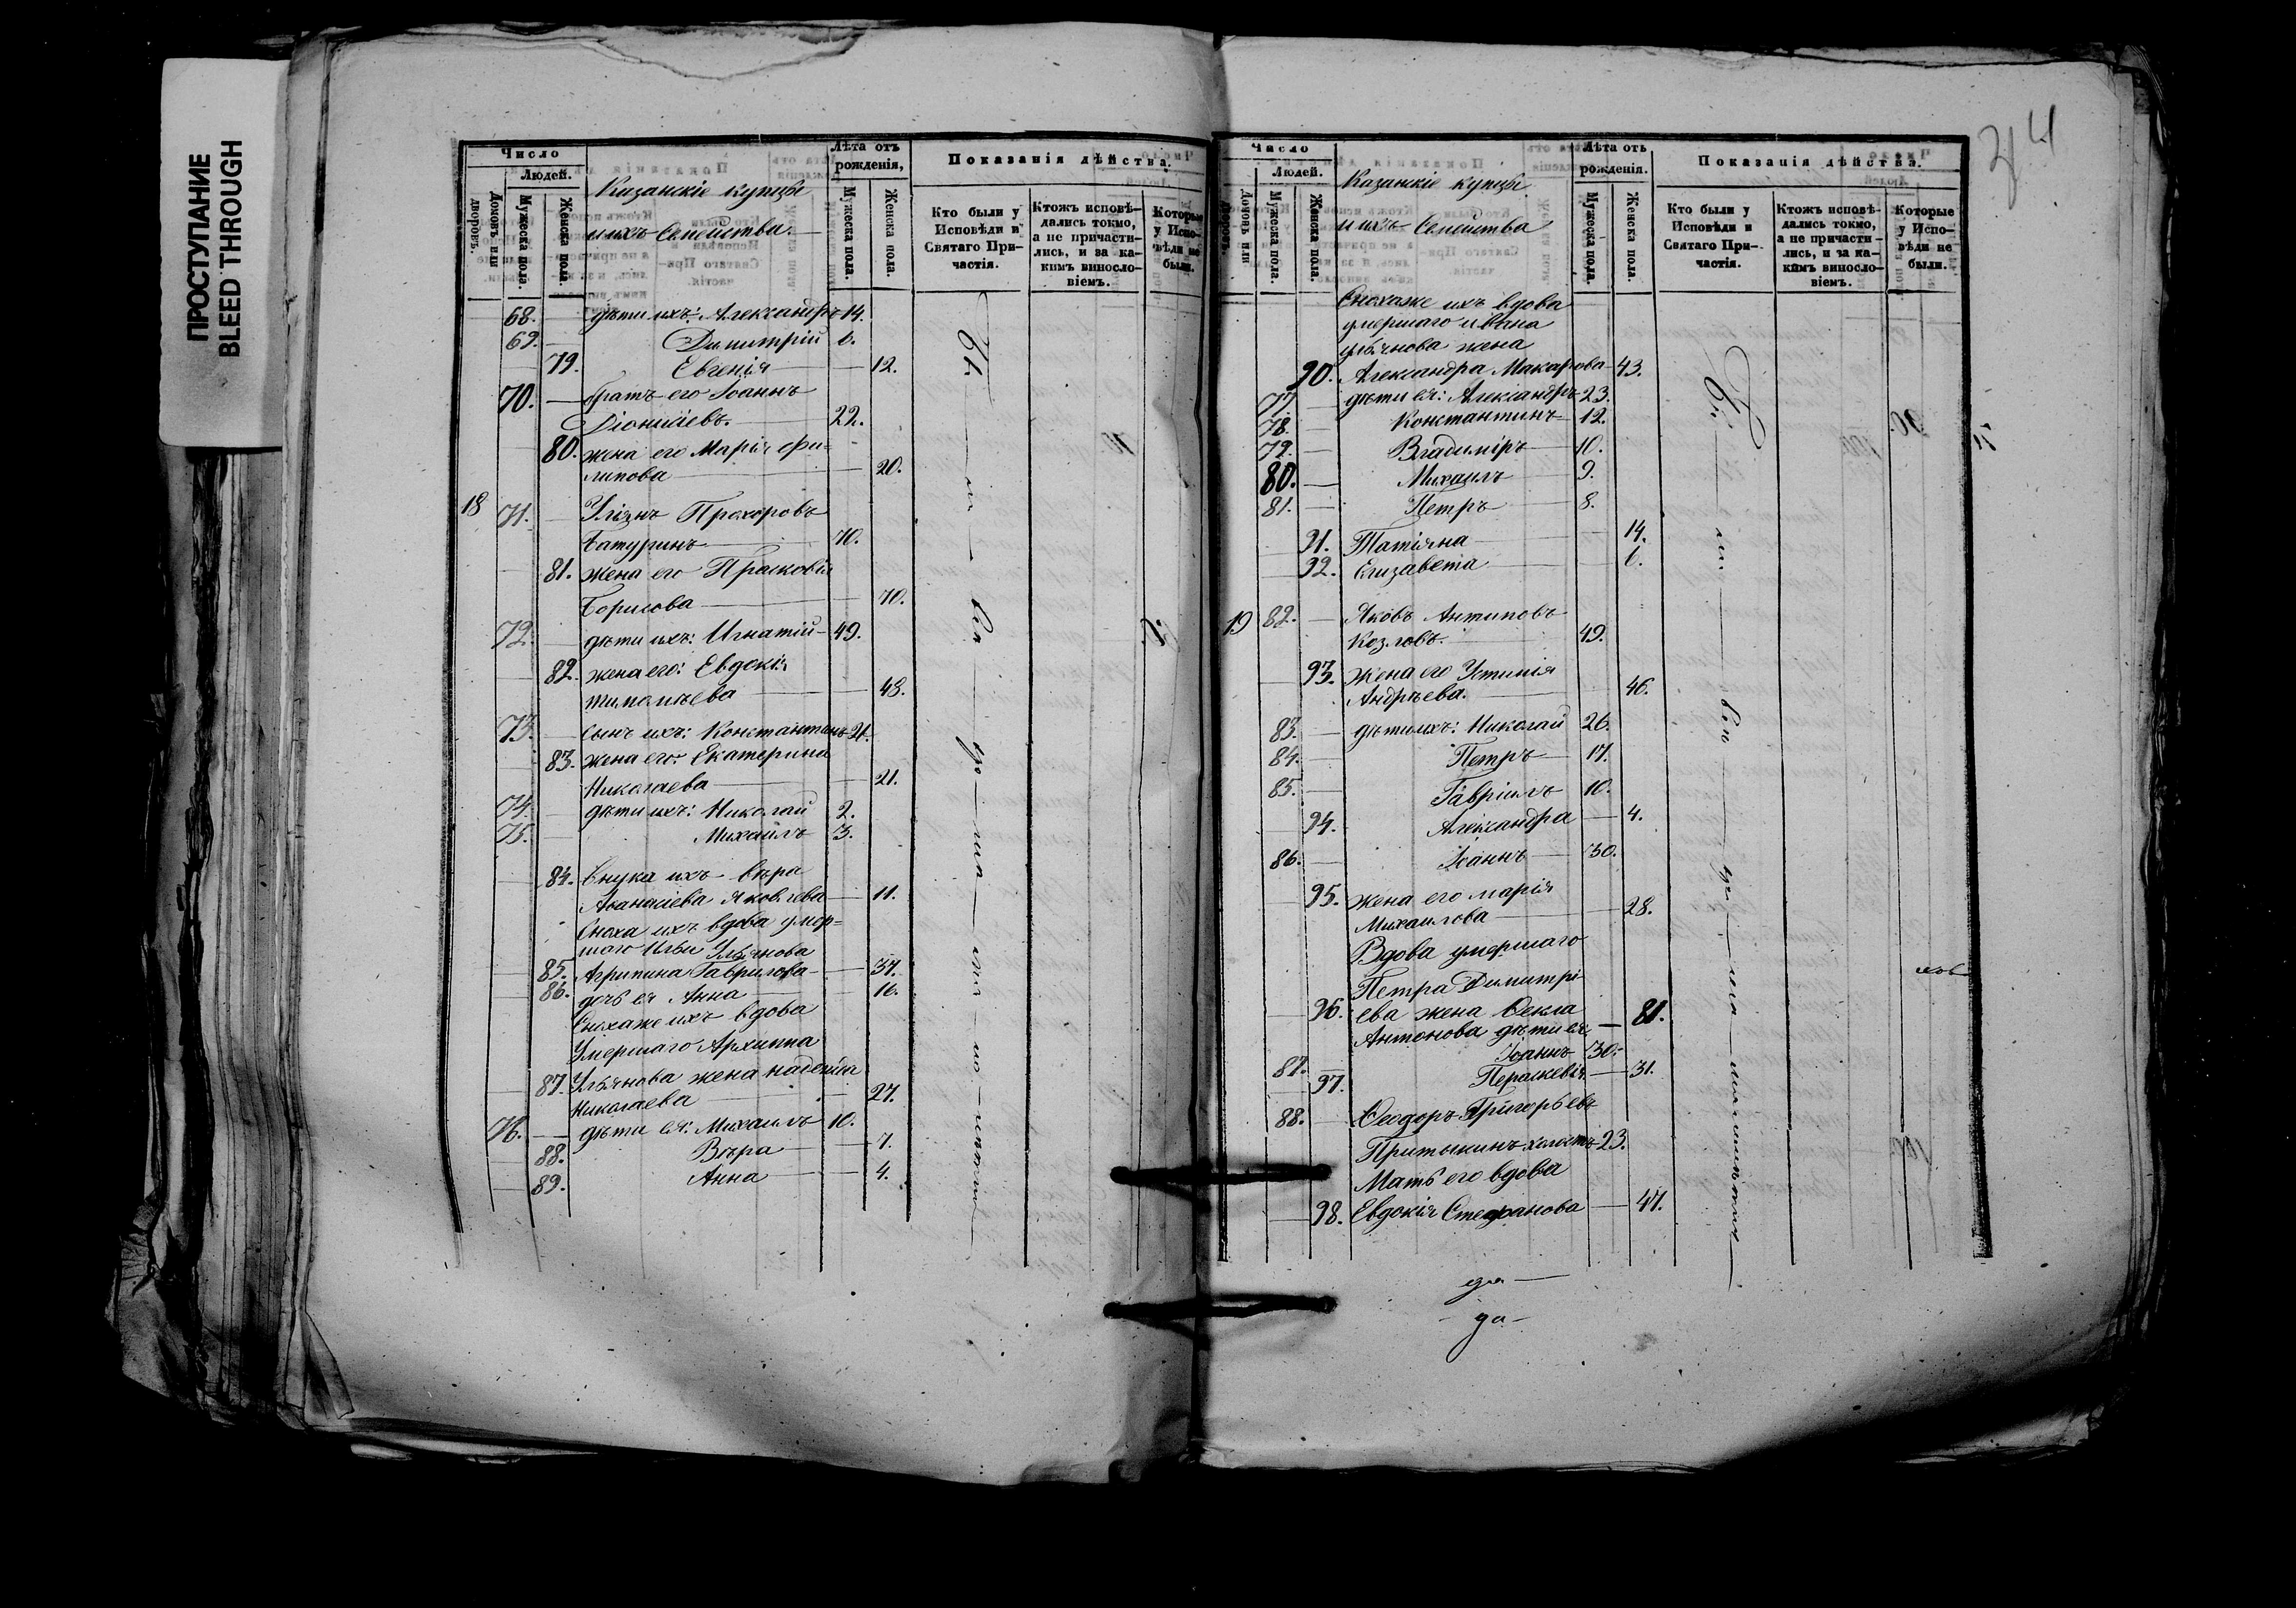 ПРОСТУПАНИЕ
BLEED THROUGH
Число
Людей.
Домовъ или дворовъ.
Мужеска пола.
Женска пола.
Казанскіе купцы
и ихъ Семейства.
Лѣта отъ рожденія,
Мужеска пола.
Женска пола.
Показанія дѣйства.
Кто были у Исповѣди и Святаго При-частія.
Ктожъ исповѣ-дались токмо, а не причасти-лись, и за ка-кимъ винос­ло-віемъ.
Которые у Испо-вѣди не были.
68. — дѣти ихъ: Александръ 14.
69. — Димитрій 6.
79. Евгенія — 12.
70. — братъ его Іоаннъ
Діонисіевъ. 22.
80. жена его Марія Фи-
липова — 20.
18 71. — Ульянъ Прохоровъ
Батуринъ 70.
81. жена его Прасковія
Борисова — 70.
72. — дѣти ихъ: Игнатій — 49.
82. жена его: Евдокія
Тимофѣева — 43.
73. — сынъ ихъ: Константинъ 21.
83. жена его: Екатерина
Николаева — 21.
74. — дѣти ихъ: Николай 2.
75. — Михаилъ 3.
84. Внука ихъ Вѣра
Аѳанасіева Яковлева — 11.
Сноха ихъ вдова умер-
шаго Ильи Ульянова
85. Агрипина Гаврилова — 37.
86. дочь ея Анна — 16.
Снохаже ихъ вдова
Умершаго Архиппа
87. Ульянова жена надежда
Николаева — 27.
76. — дѣти ея: Михаилъ 10.
88. Вѣра — 7.
89. Анна — 4.
Бы — ли — вси
34
Число
Людей.
Домовъ или дворовъ.
Мужеска пола.
Женска пола.
Казанскіе купцы
и ихъ Семейства
Лѣта отъ рожденія.
Мужеска пола.
Женска пола.
Показанія дѣйства.
Кто были у Исповѣди и Святаго При-частія.
Ктожъ исповѣ-дались токмо, а не причасти-лись, и за ка-кимъ винос­ло-віемъ.
Которые у Испо-вѣди не были.
Снохаже ихъ вдова
умершаго Ивана
Ульянова жена
90. Александра Макарова — 43.
77. — дѣти ея: Александръ 23.
78. — Константинъ 12.
79. — Владиміръ 10.
80. — Михаилъ 9.
81. — Петръ 8.
91. Татіяна — 14.
92. Елизавета — 6.
19 82. — Яковъ Антиповъ
Козловъ. 49.
93. жена его Устинія
Андрѣева. — 46.
83. — дѣти ихъ: Николай 26.
84. — Петръ 17.
85. — Гавріилъ 10.
94. Александра — 4.
86. — Іоаннъ 30.
95. жена его марія
Михаилова — 28.
Вдова умершаго
Петра Димитрі-
96. ева жена Ѳекла
Антонова дѣти ея — 81.
87. Іоаннъ 30.
97. Параскевія — 31.
88. — Ѳеодоръ Григорьевъ
Притыкинъ холостъ 23.
Мать его вдова
98. Евдокія Стефанова — 47.
Бы — ли — вси
да —
— да —